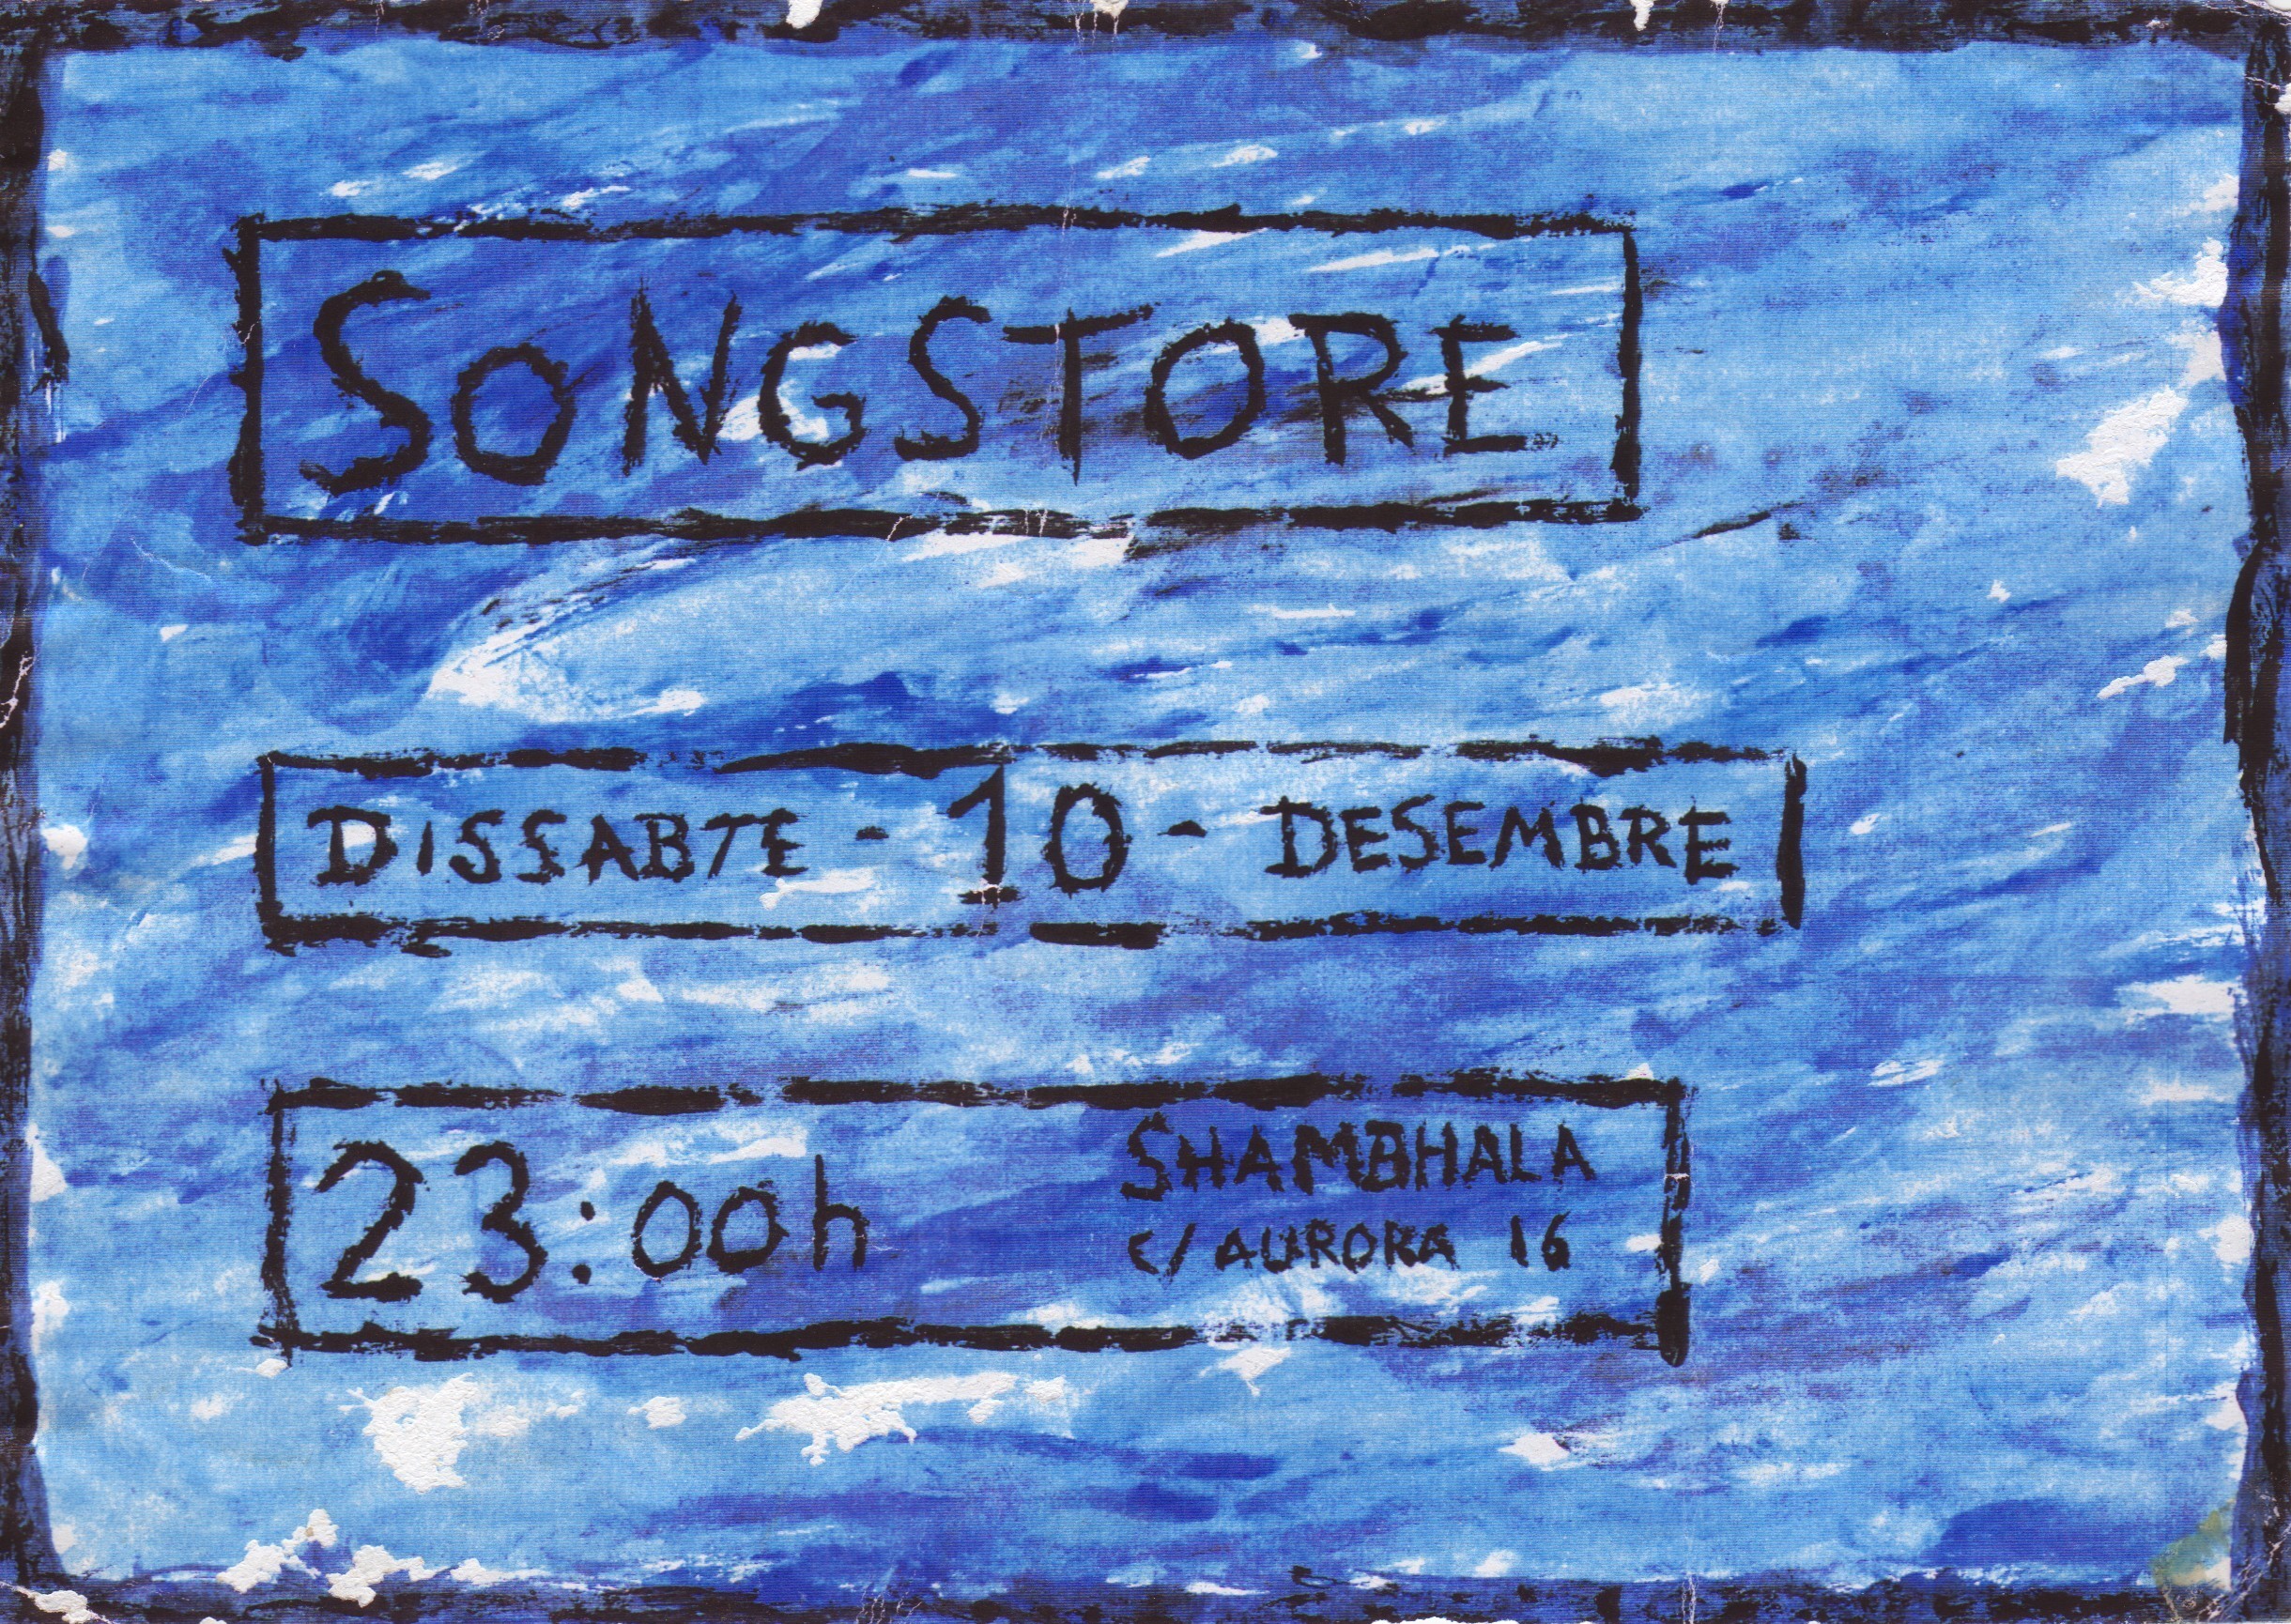 SONGSTORE
DISSABTE - 10 - DESEMBRE
23:00h
SHAMBHALA
c/ AURORA 16